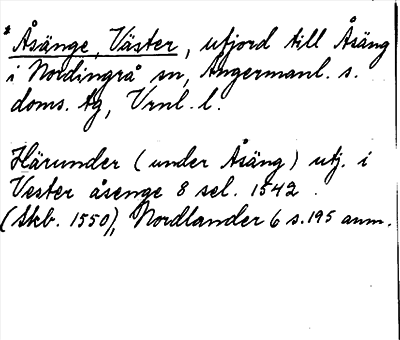 * Åsänge, Väster, utjord till Åsäng
i Nordingrå sn, Ångermanl. s.
doms. tg, Vrnl. l.
Härunder (under Åsäng) utj. i
Vester åsenge 8 sel. 1542.
(Skb. 1550), Nordlander 6 s. 195 anm.